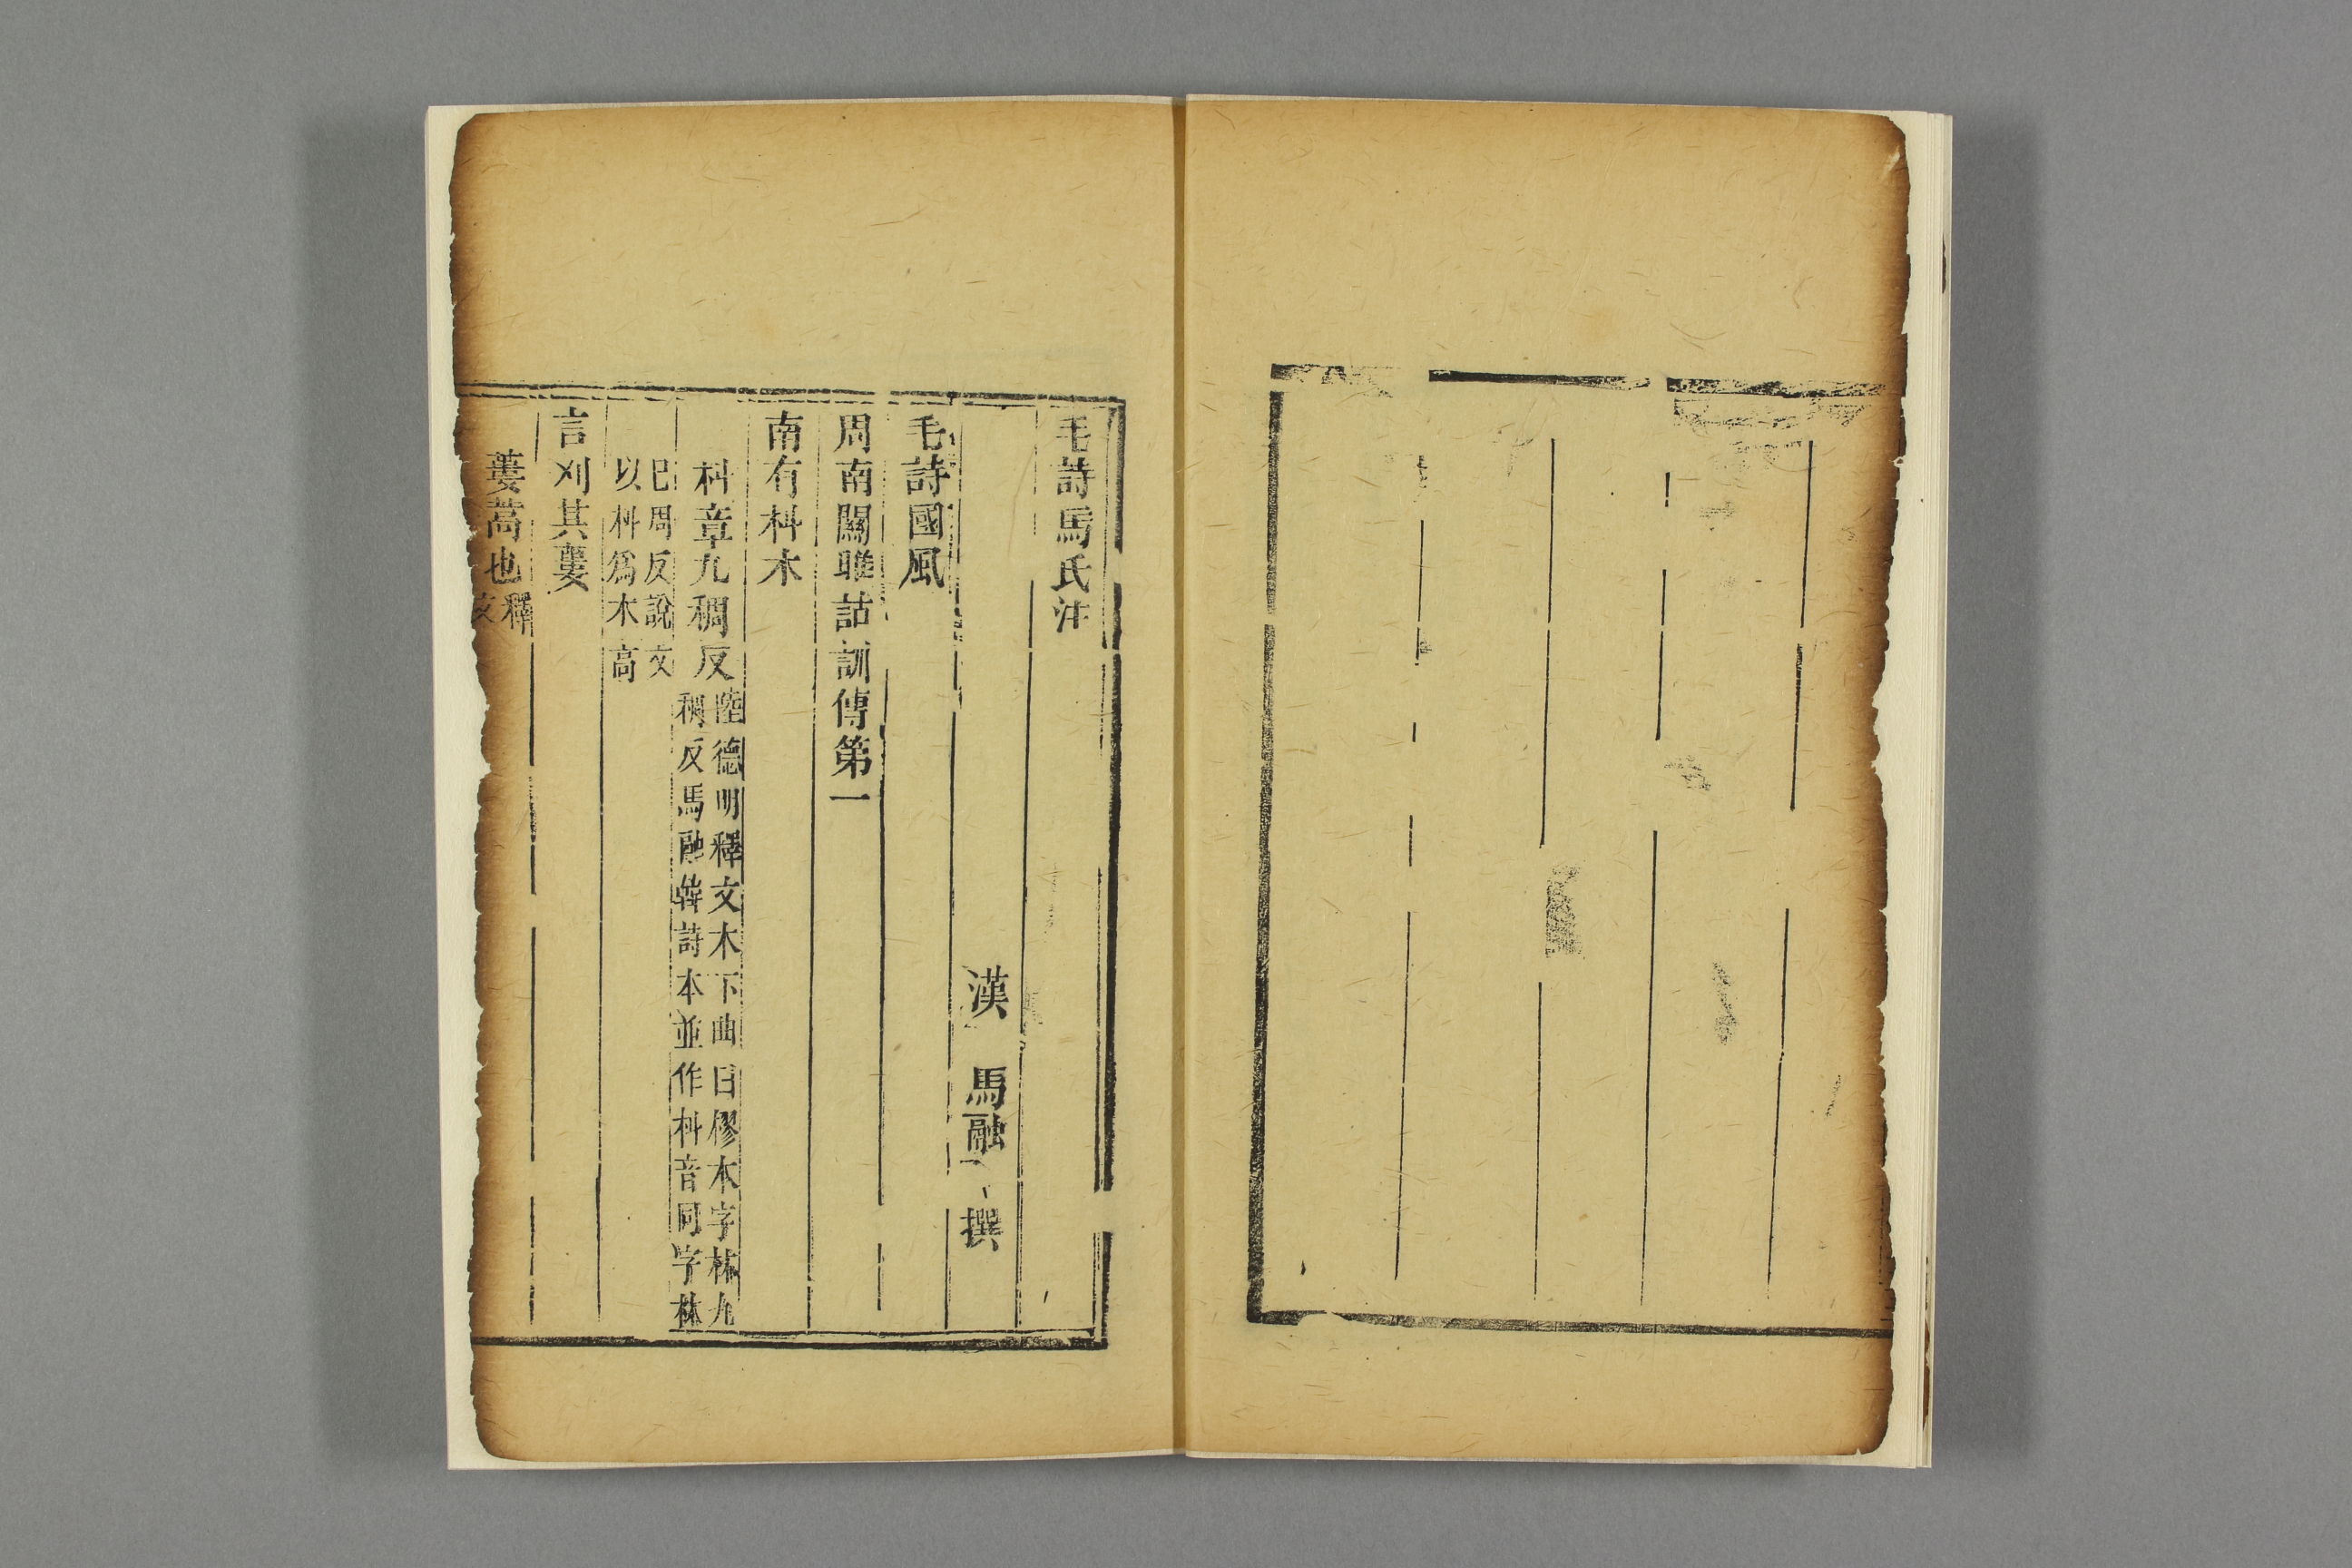 毛詩馬氏注
漢　馬融　撰
毛詩國風
周南關雎詁訓傳第一
南有朻木
朻章九稠反陸德明釋文木下曲曰樛本字林九
稠反馬融韓詩本並作朻音同字林
已周反說文
以朻爲木高
言刈其蔞
蔞蒿也釋
文